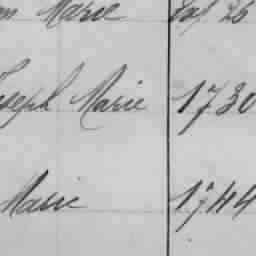 Marie 26
Joseph Marie 1730
Marie 1744